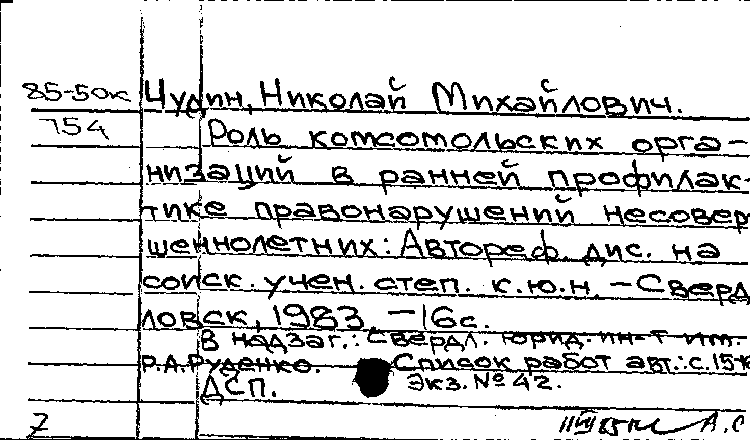 85-50к Чудин, Николай Михайлович.
754 Роль комсомольских орга-
низаций в ранней профилак-
тике правонарушений несовер
шеннолетних: Автореф. дис. на
соиск. учен. степ. к.ю.н. - Сверд
ловск, 1983. - 16с.
В надзаг.: Свердл. юрид. ин-т им.
Р.А.Руденко. Список работ авт.: с.15-
ДСП. Экз. № 42.
7 А.С